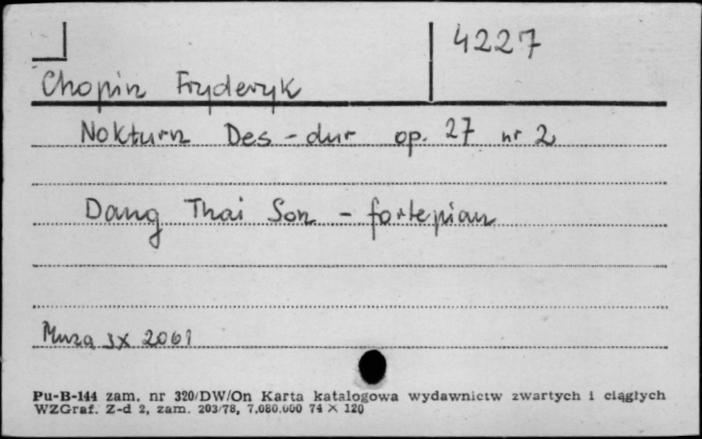 4227
Chopin Fryderyk
Nokturn Des-dur op. 27 nr 2
Dang Thai Son - fortepian
Muza SX 2061
Pu-B-144 zam. nr 320/DW/On Karta katalogowa wydawnictw zwartych i ciągłych
WZGraf. Z-d 2, zam. 203/78, 7.080.000 74 × 120